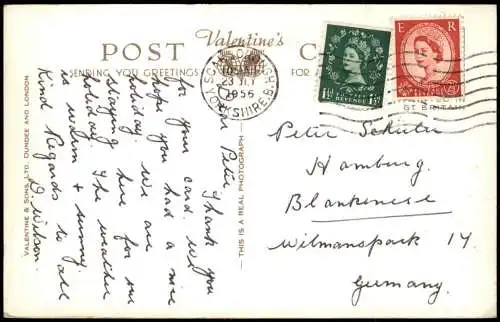 Valentine's
POST C
SENDING YOU GREETINGS FOR A
1956
YORKSHIRE
REVENUE
E R
GT BRITAIN
VALENTINE & SONS, LTD. DUNDEE AND LONDON
THIS IS A REAL PHOTOGRAPH
Dear Peter, Thank you
for your card. We
hope you had a nice
holiday. We are
staying here for our
holiday. The weather
is warm & sunny.
Kind Regards to all
D. Wilson.
Peter Schuter
Hamburg
Blankenese
Wilmanspark 14
Germany.